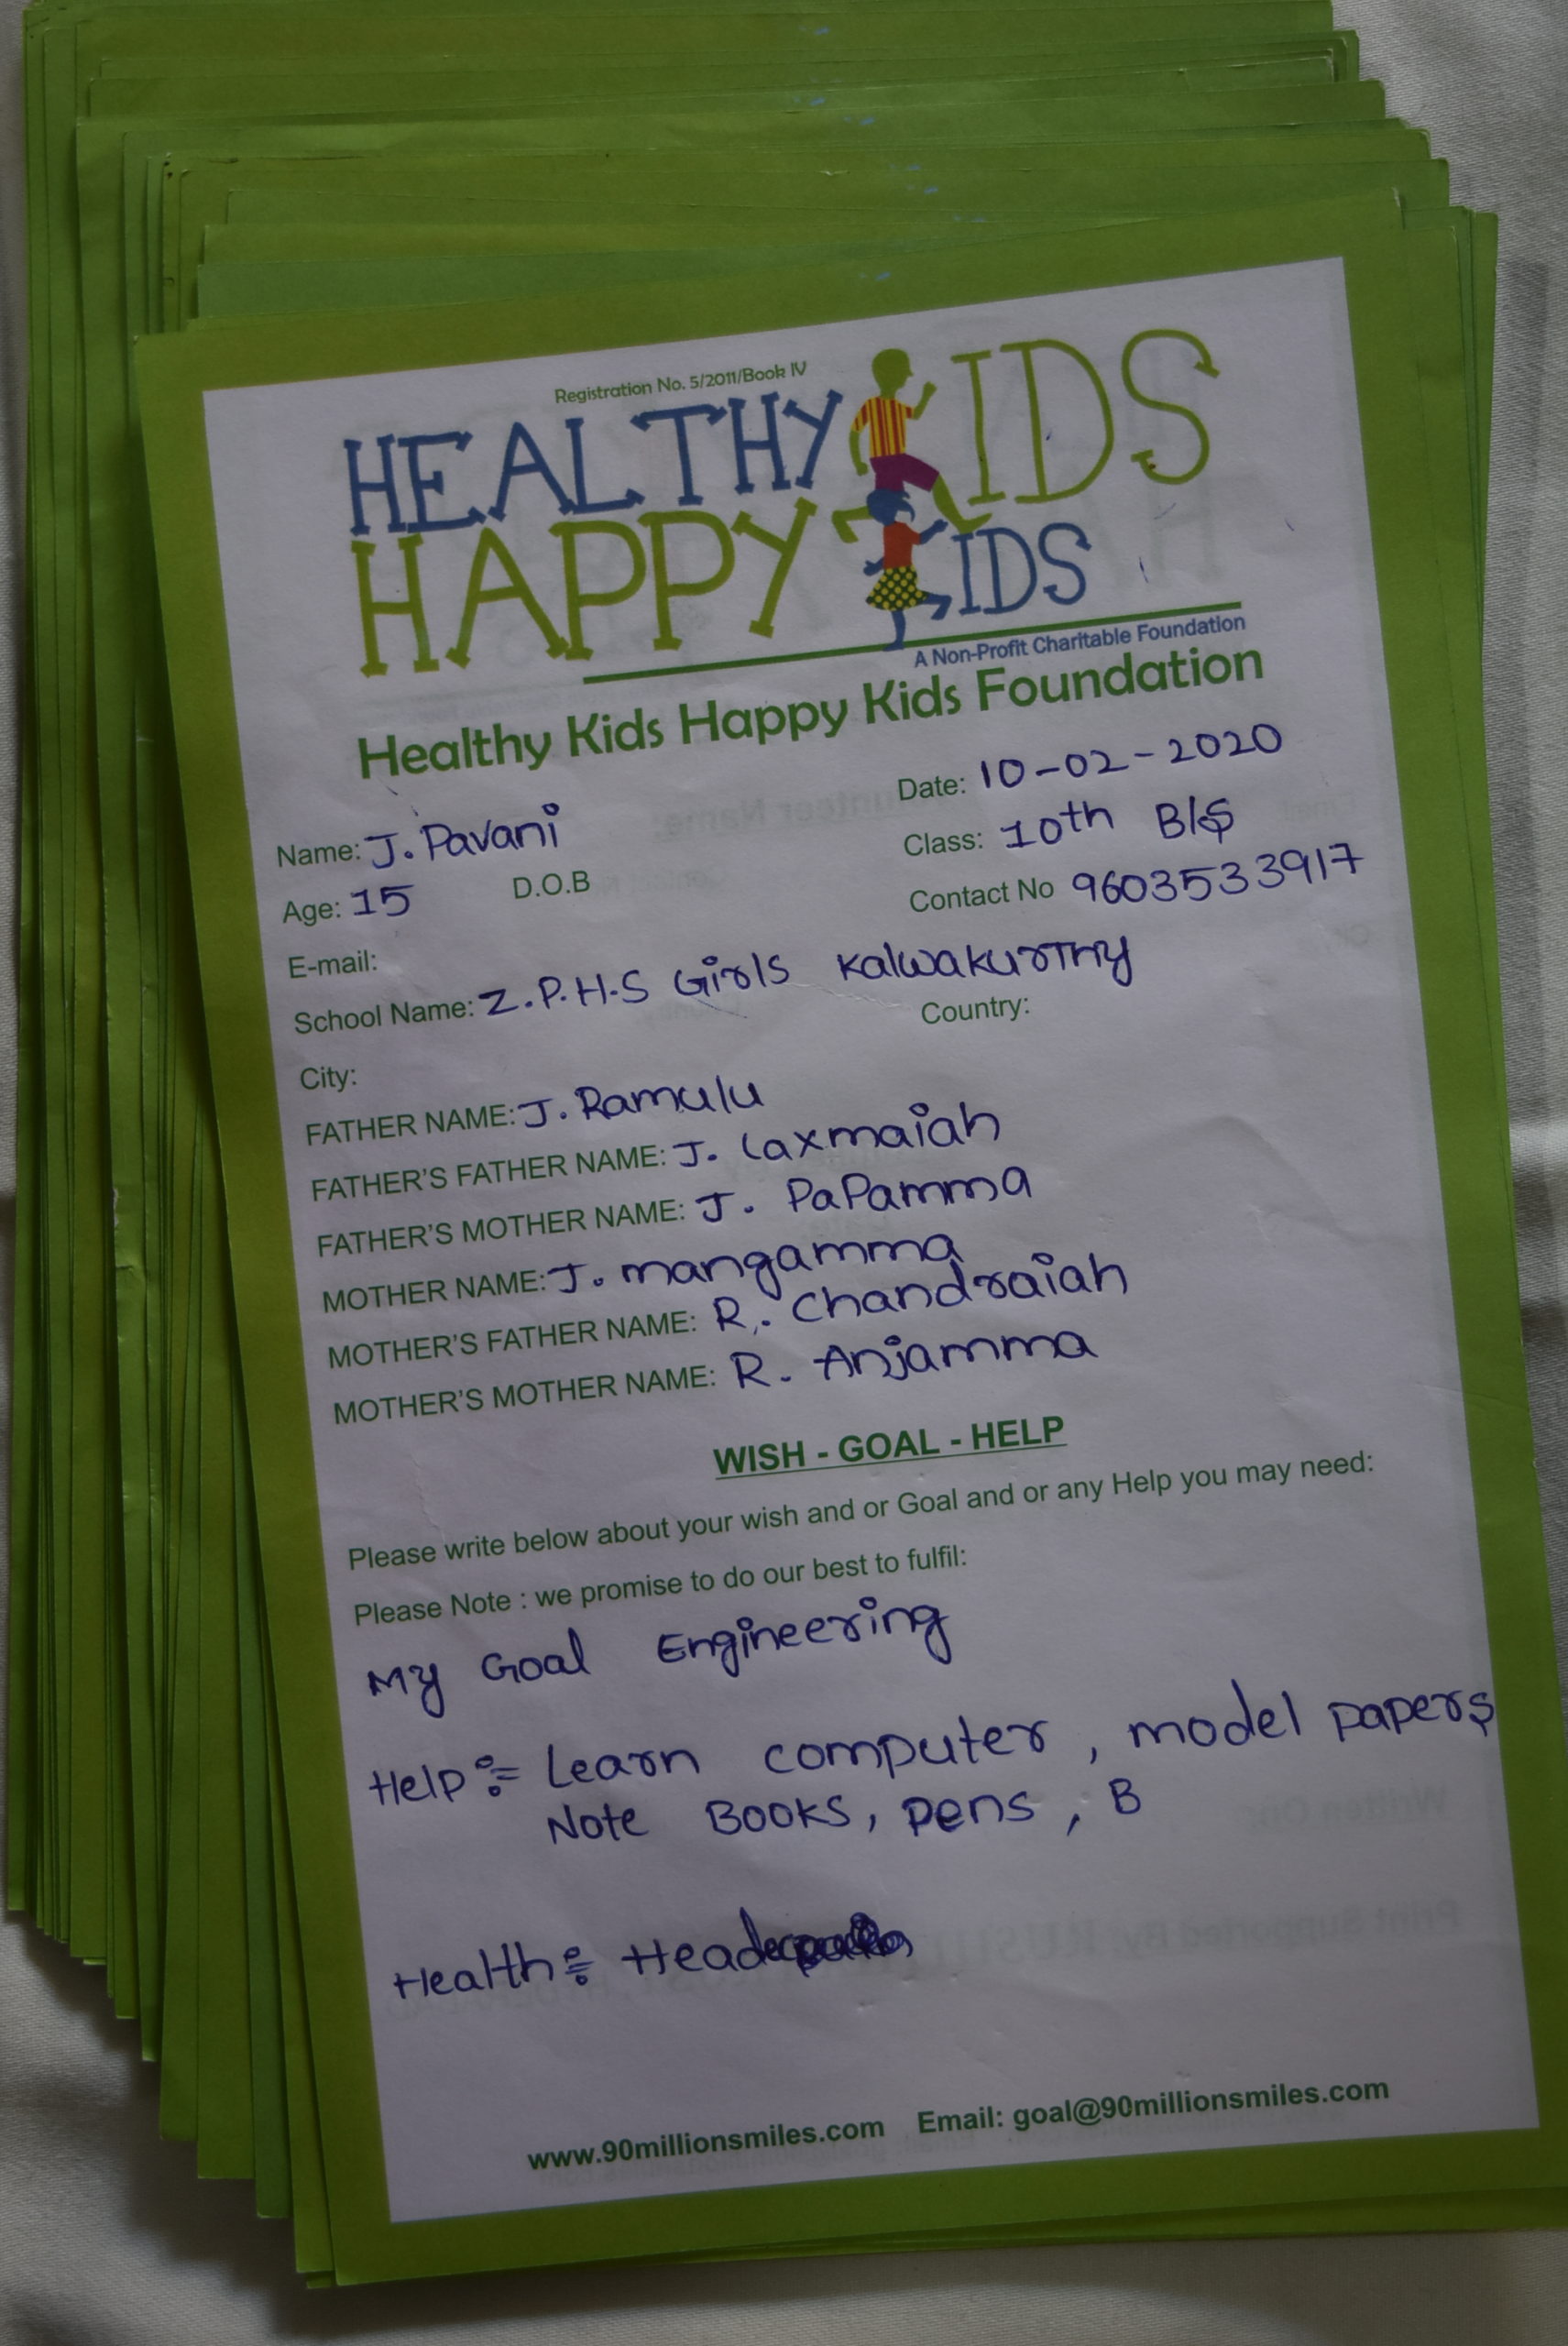 Registration No. 5/2011/Book IV
HEALTHY KIDS
HAPPY KIDS
A Non-Profit Charitable Foundation
Healthy Kids Happy Kids Foundation
Date: 10-02-2020
Name: J. Pavani
Class: 10th B/S
Age: 15 D.O.B
Contact No 9603533917
E-mail:
School Name: Z.P.H.S Girls Kalwakurthy
Country:
City:
FATHER NAME: J. Ramulu
FATHER'S FATHER NAME: J. Laxmaiah
FATHER'S MOTHER NAME: J. PaPamma
MOTHER NAME: J. mangamma
MOTHER'S FATHER NAME: R. Chandraiah
MOTHER'S MOTHER NAME: R. Anjamma
WISH - GOAL - HELP
Please write below about your wish and or Goal and or any Help you may need:
Please Note : we promise to do our best to fulfil:
My Goal Engineering
Help := Learn computer, model papers
Note Books, pens, B
Health :=
www.90millionsmiles.com Email: goal@90millionsmiles.com